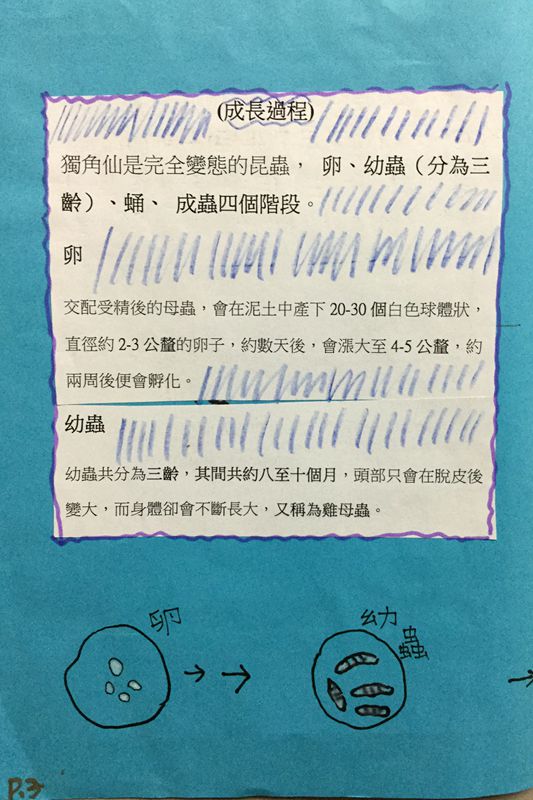 (成長過程)
獨角仙是完全變態的昆蟲， 卵、幼蟲（分為三
齡）、蛹、 成蟲四個階段。
卵
交配受精後的母蟲，會在泥土中產下 20-30 個白色球體狀，
直徑約 2-3 公釐的卵子，約數天後，會漲大至 4-5 公釐，約
兩周後便會孵化。
幼蟲
幼蟲共分為三齡，其間共約八至十個月，頭部只會在脫皮後
變大，而身體卻會不斷長大，又稱為雞母蟲。
卵
幼
蟲
P.3